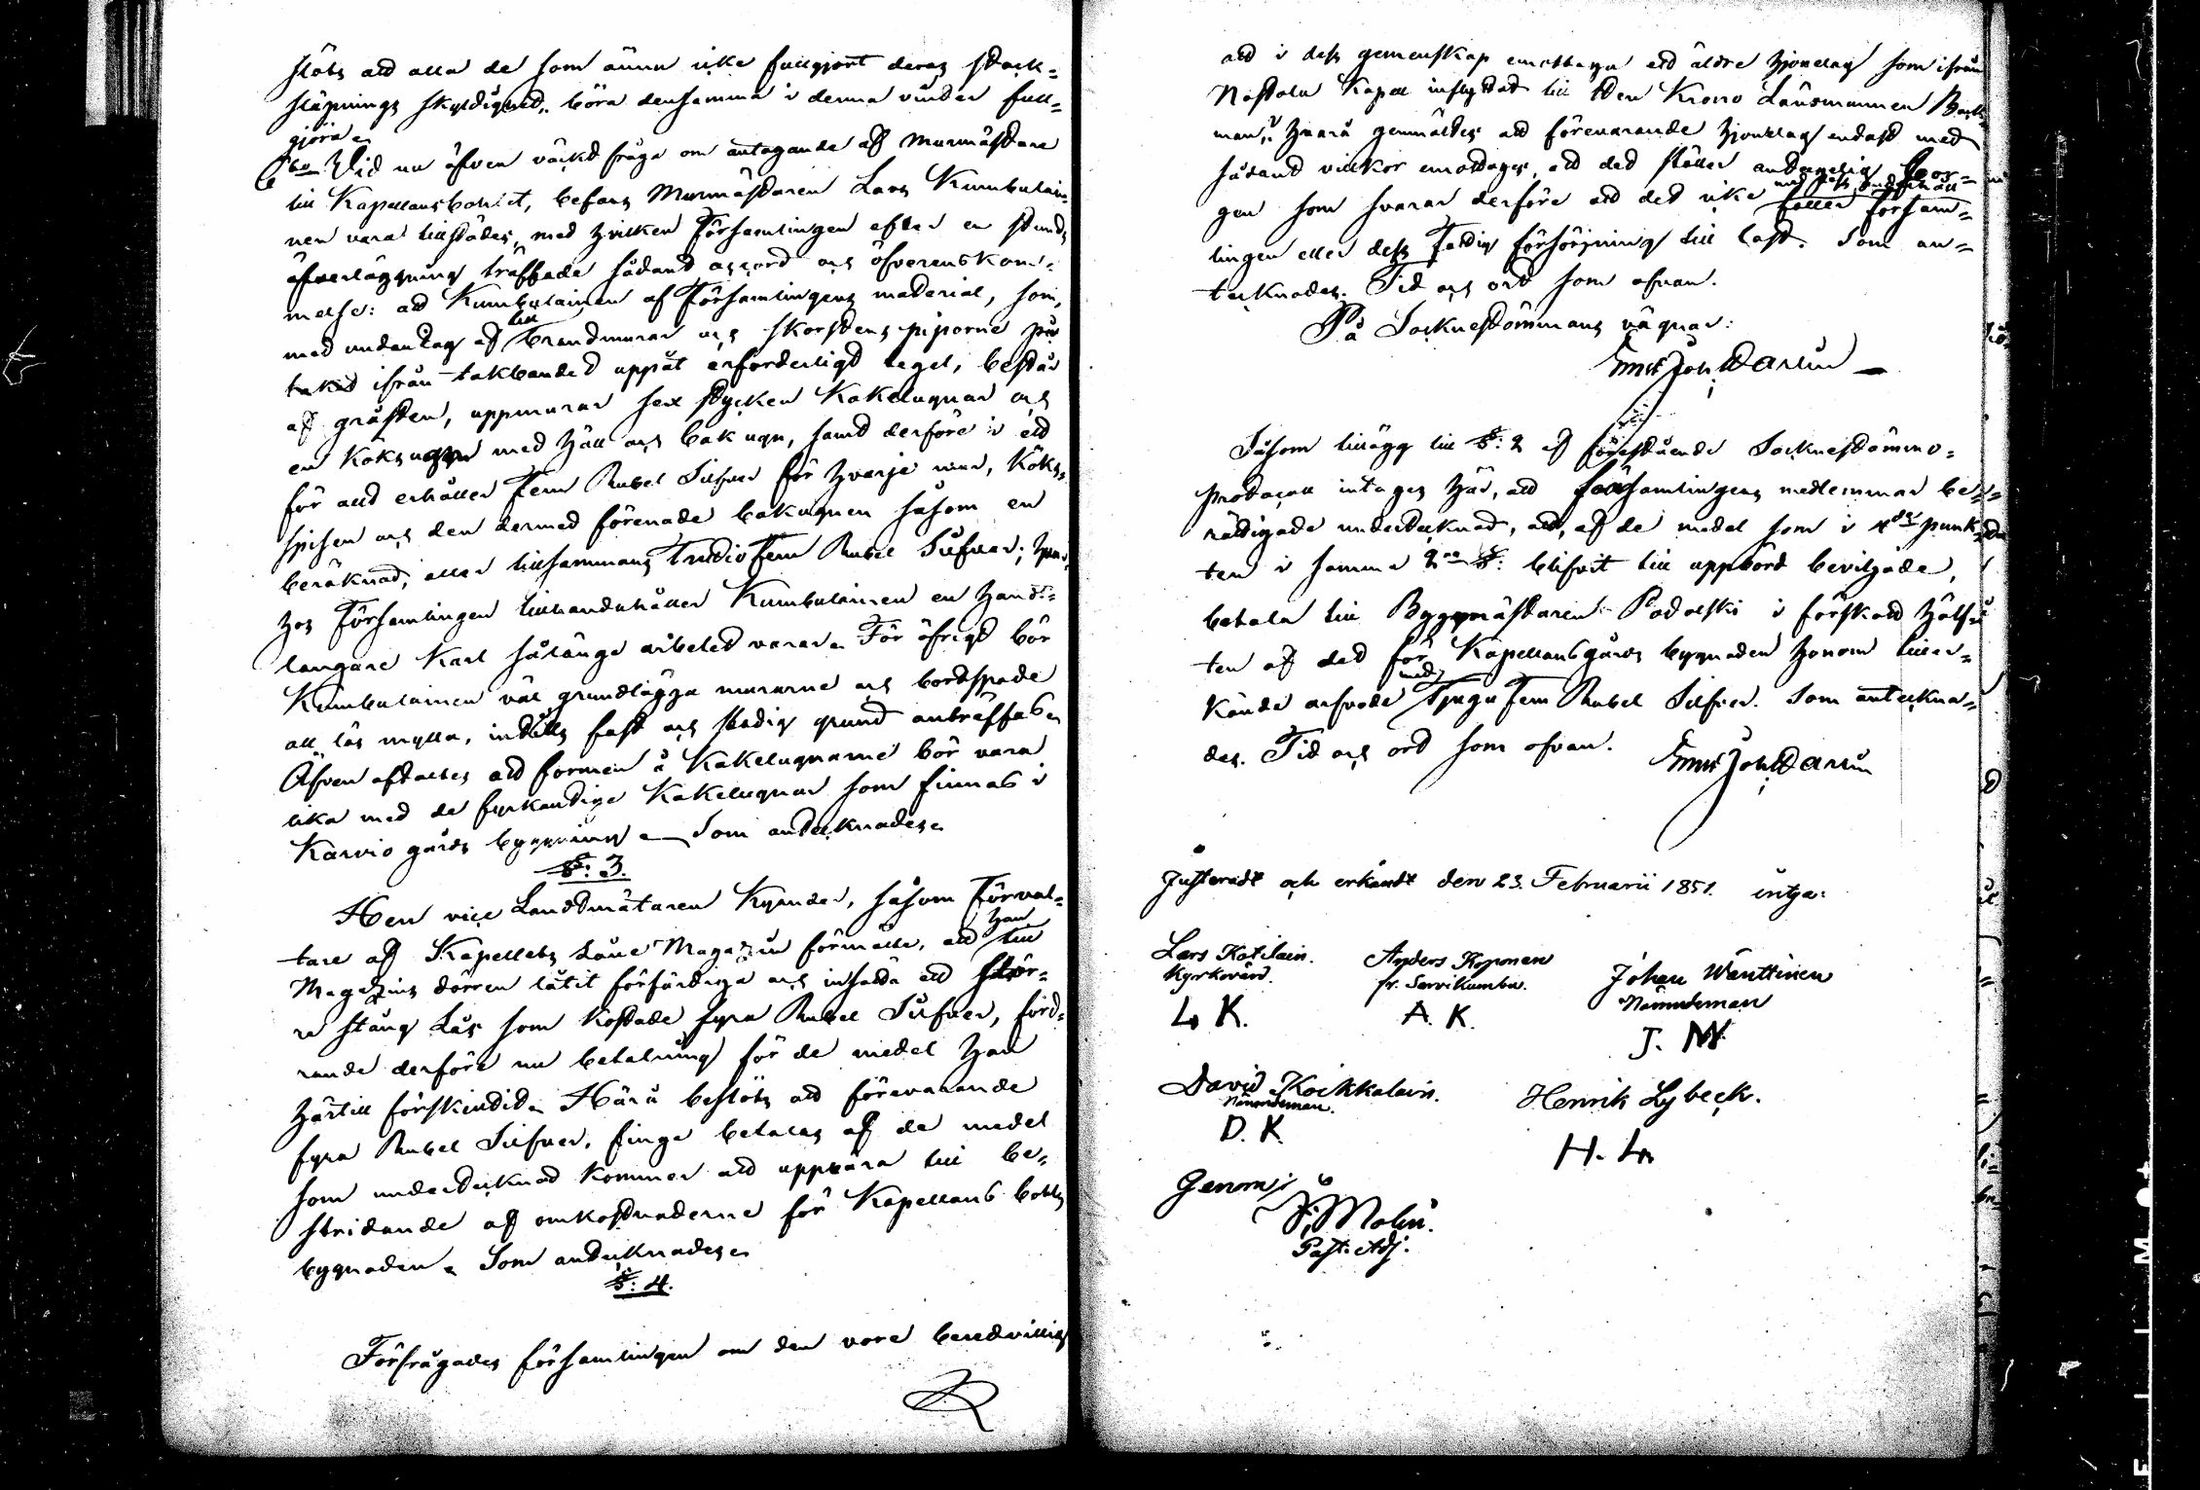 slöts att alla de som ännu icke fullgjort deras stock-
släpnings skyldighet, böra densamma i denna vinter full-
göra.
6to Vid nu äfven väckt fråga om antagande af Murmästare
till Kapellansbohlet, befans Murmästaren Lars Kumbulain-
nen vara tillstädes, med hvilken Församlingen efter en stunds
öfverläggning träffade sådant accord och öfverenskom-
melse: att Kumbulainen af Församlingens material, som,
med undantag af till brandmurar och skorstens piporne på
taket ifrån takbandet uppåt erforderligt tegel, består
af gråsten, uppmurar sex stycken Kakelugnar och
en Köksugn med häll och bakugn, samt derföre i ett
för allt erhåller Fem Rubel Silfver för hvarje mur, Köks-
spisen och den dermed förenade bakugnen såsom en
beräknad, eller tillsammans Trettiofem Rubel Silfver; hvar-
hos Församlingen tillhandahåller Kumbulainen en hand-
langare Karl sålänge arbetet varar. För öfrigt bör
Kumbulainen väl grundlägga murarne och bortspade
all lös mylla, indills fast och stadig grund anträffas.
Äfven aftaltes att formen å Kakelugnarne bör vara
lika med de fyrkantige Kakelugnar som finnas i
Karvio gårds byggning. Som antecknades.
§: 3.
Herr vice Landtmätaren Kynder, såsom Förval-
tare af Kapellets Låne Magazin förmälte, att han till
Magazins dörren låtit förfärdiga och insätta ett stör-
re stång Lås som kostade fyra Rubel Silfver, ford-
rande derföre nu betalning för de medel han
härtill förskindtit. Härå beslöts att förevarande
fyra Rubel Silfver, finge betalas af de medel
som undertecknad kommer att uppbära till be-
stridande af omkostnaderne för Kapellans bohls
bygnaden. Som antecknades.
§: 4.
Förfrågades församlingen om den vore beredvillig
att i dess gemenskap emottaga ett äldre hjonelag som ifrån
Kapell inflyttat till den Krono Länsmannen
man, hvarå genmältes att förevarande hjonelag endast med
sådant villkor emottages, att det ställer antagelig bor-
gen som svarar derföre att det icke med sitt underhåll faller försam-
lingen eller dess Fattig försörjning till last. Som an-
tecknades. Tid och ort som ofvan.
På Socknestämmans vägnar:
Såsom tillägg till §: 2 af förestående Sockenstämmo-
protocoll intages här, att församlingens medlemmar be-
rättigade undertecknad, att, af de medel som i 4de punk-
ten i samma 2ne §: blifvit till uppbörd beviljade,
betala till Byggmästaren Podolski i förskott hälf-
ten af det för Kapellansgårds bygnaden honom tiller-
kände arfvode med Tjugufem Rubel Silfver. Som anteckna-
des. Tid och ort som ofvan.
Justeradt och erkändt den 23. Februarii 1851. intyga:
Lars Katilain. Anders Koponen Johan Wänttinen
Kyrkovärd. fr. Sarvikumbu. Nämndeman
L. K. A. K. J. W.
David Koikkalain. Henrik Lybeck.
Nämndeman.
D. K. H. L.
Genom
J. Molin.
Past. Adj.